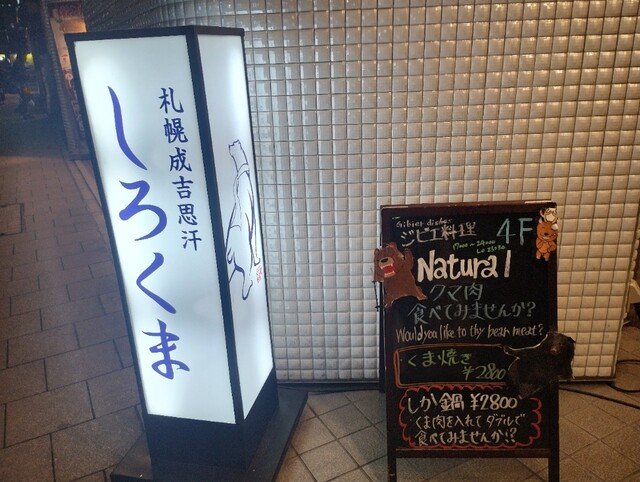 札幌成吉思汗
しろくま
Gibier dishes
ジビエ料理 4F
17:00~24:00
Lo 23:30
Natural
クマ肉
食べてみませんか?
Would you like to try bear meat?
くま焼き
¥2800
しか鍋 ¥2800
くま肉を入れてダブルで
食べてみませんか!?